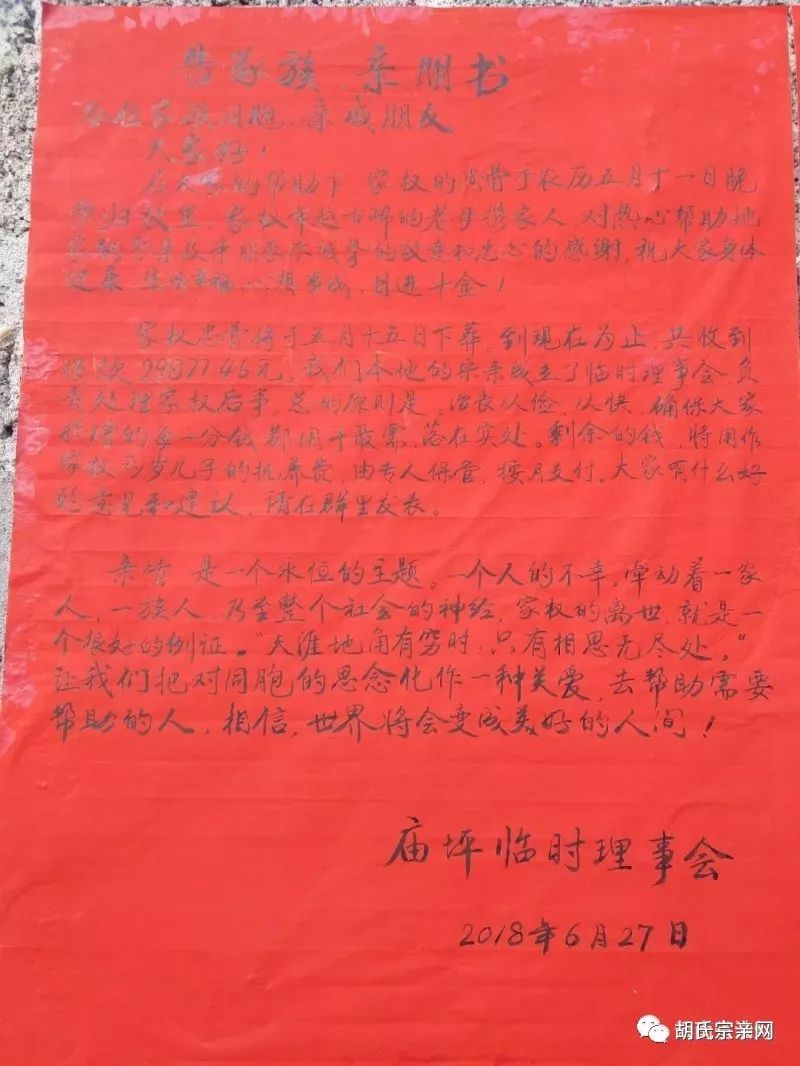 告家族、亲朋书
各位家族同胞、亲戚朋友
大家好！
在大家的帮助下，家权的忠骨于农历五月十一日晚
荣归故里，家权年越古稀的老母携家人，对热心帮助她
家的宗亲及亲朋表示诚挚的敬意和忠心的感谢，祝大家身体
健康，生活幸福，心想事成，日进斗金！
家权忠骨将于五月十五日下葬。到现在为止，共收到
捐款29877.46元。我们本地的宗亲成立了临时理事会，负
责处理家权后事，总的原则是，治丧从俭，从快，确保大家
捐赠的每一分钱都用于最需，落在实处。剩余的钱，将用作
家权 岁儿子的抚养费，由专人保管，按月支付。大家有什么好
的意见和建议，请在群里发表。
亲情，是一个永恒的主题。一个人的不幸，牵动着一家
人，一族人，乃至整个社会的神经，家权的离世，就是一
个很好的例证。“天涯地角有穷时，只有相思无尽处。”
让我们把对同胞的思念化作一种关爱，去帮助需要
帮助的人，相信，世界将会变成美好的人间！
庙坪临时理事会
2018年6月27日
胡氏宗亲网